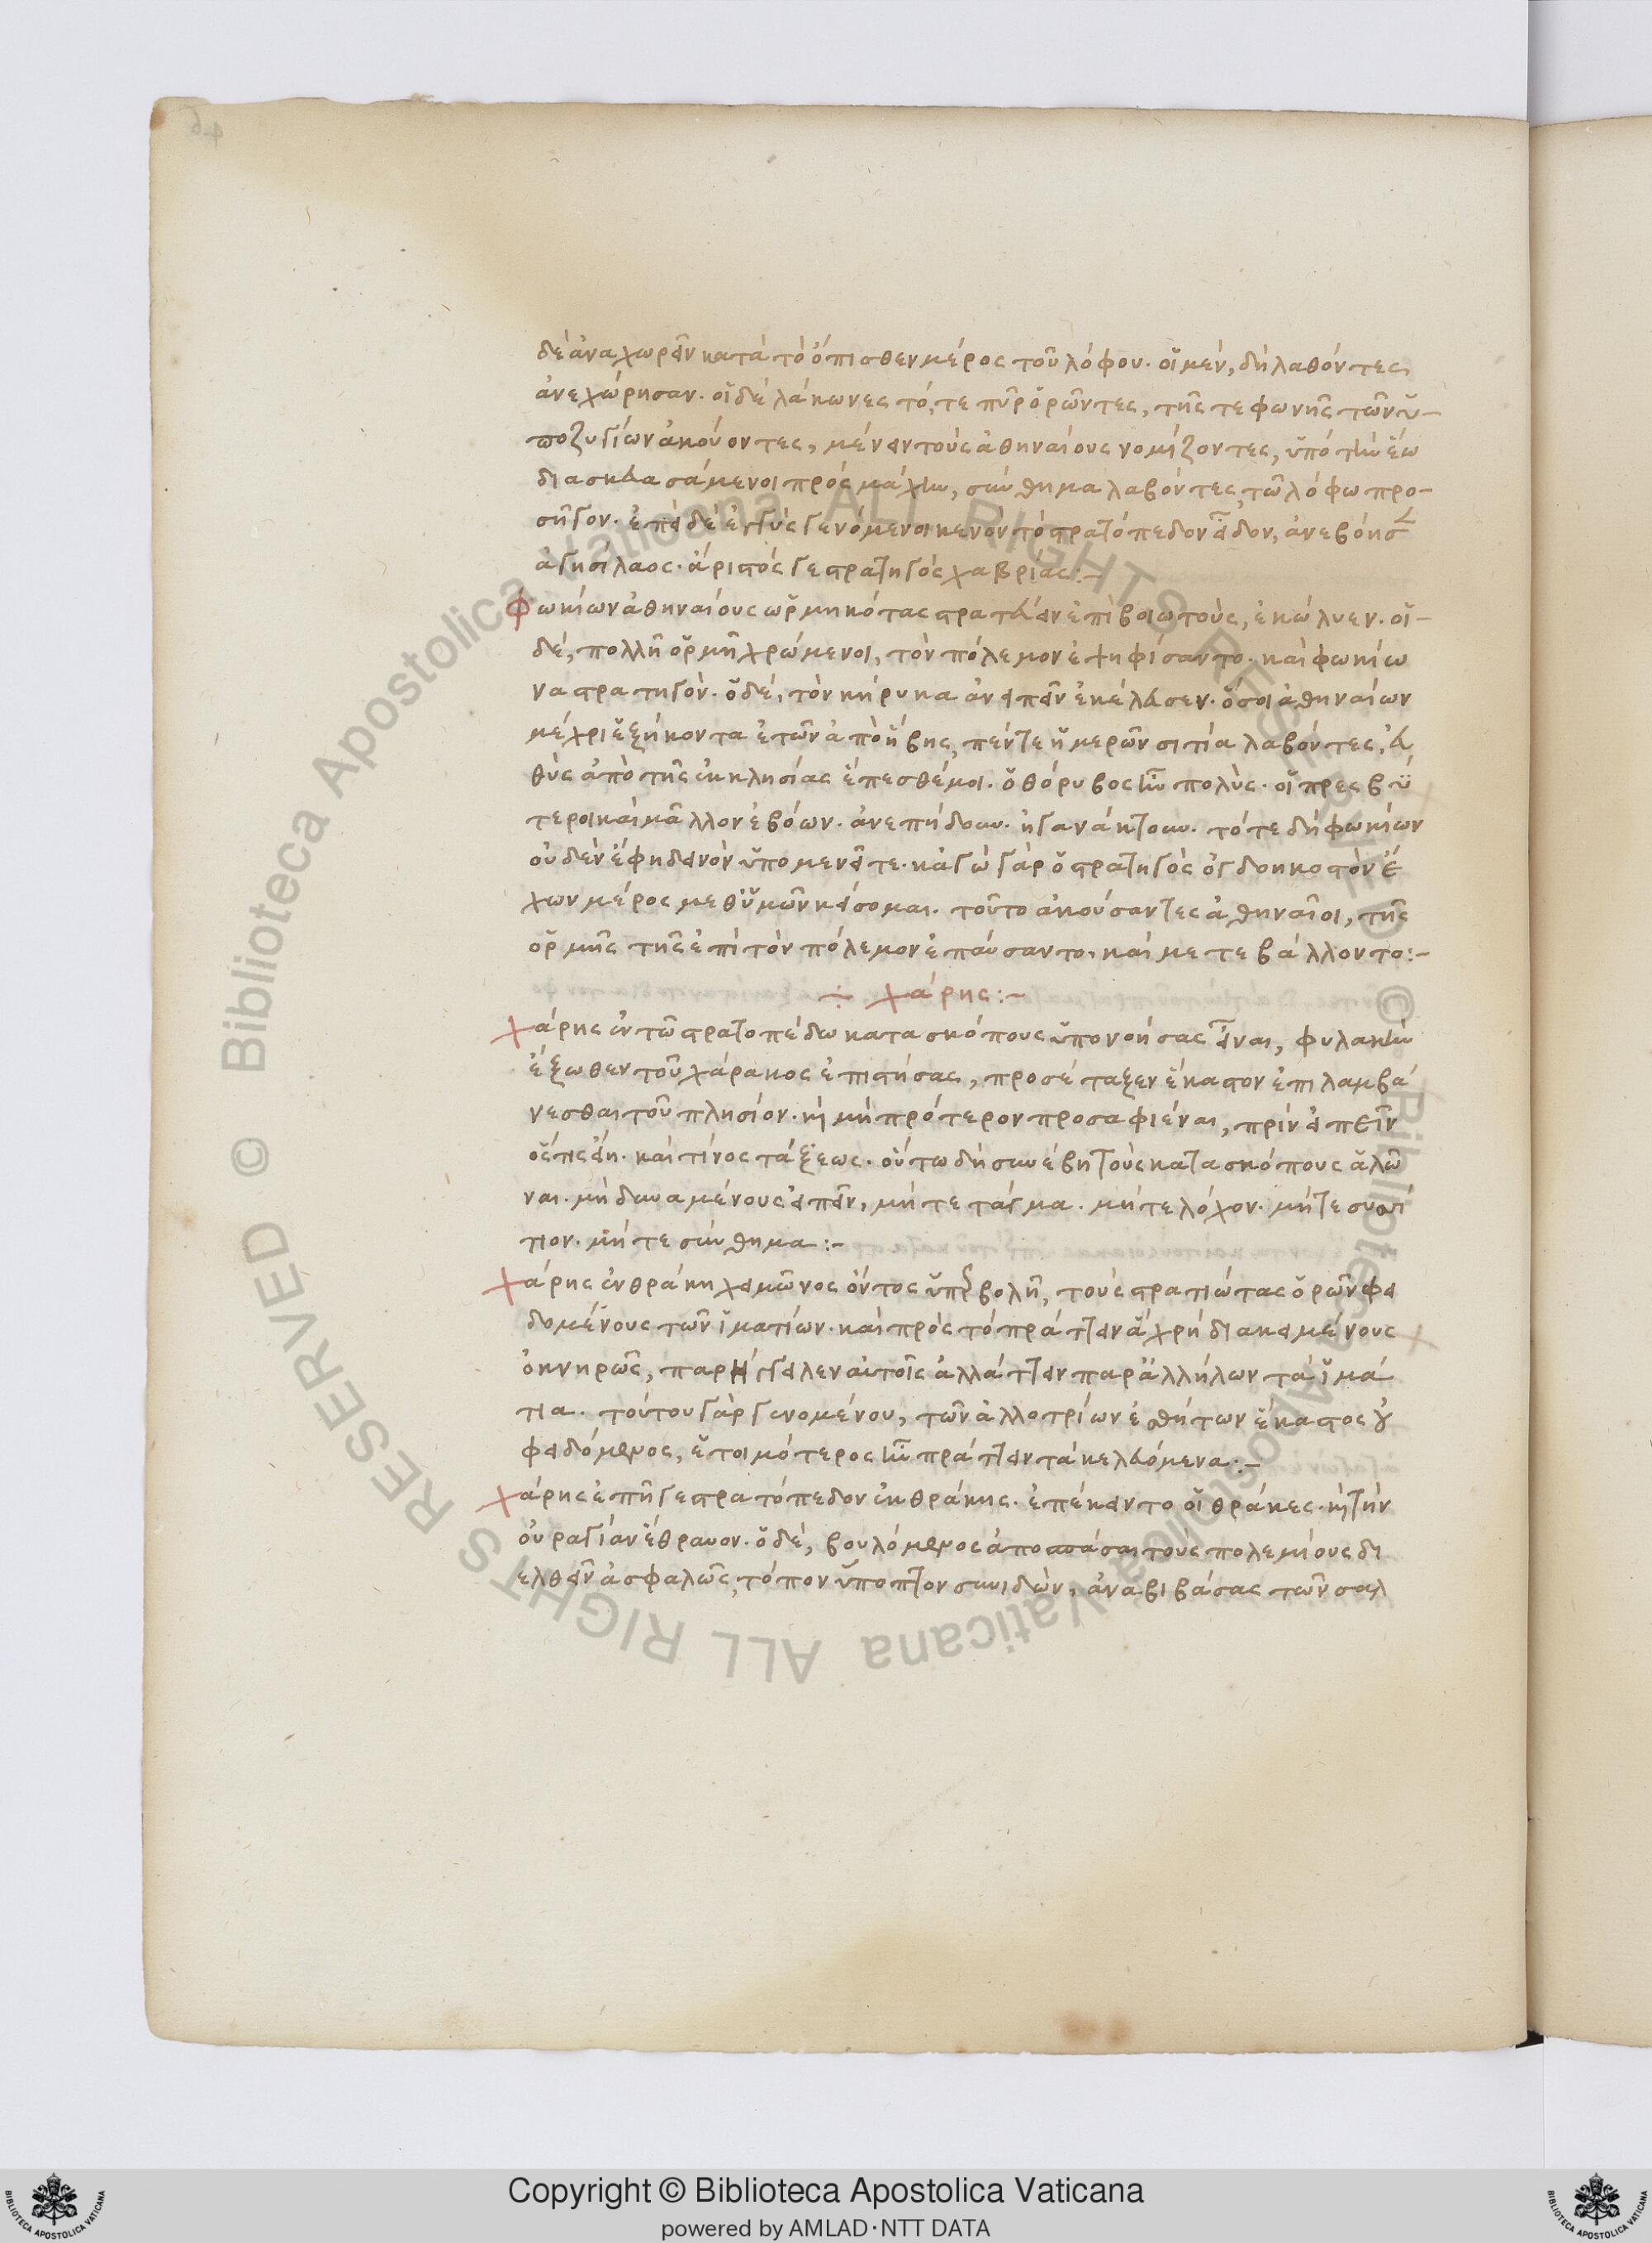 δὲ ἀναχωρεῖν κατὰ τὸ ὄπισθεν μέρος τοῦ λόφου. οἱ μὲν, δὴ λαθόντες,
ἀνεχώρησαν. οἱ δὲ λάκωνες τό, τε πῦρ ὁρῶντες, τῆς τε φωνῆς τῶν ὑ-
ποζυγίων ἀκούοντες, μένειν τοὺς ἀθηναίους νομίζοντες, ὑπὸ τὴν ἕω
διασκευασάμενοι πρὸς μάχην, σύνθημα λαβόντες, τῶ λόφω προ-
σῆγον. ἐπεὶ δὲ ἐγγὺς γενόμενοι κενὸν τὸ στρατόπεδον εἶδον, ἀνεβόησεν
ἀγησίλαος. ἄριστός γε στρατηγὸς χαβρίας:-
φωκίων ἀθηναίους ὡρμηκότας στρατεύειν ἐπὶ βοιωτοὺς, ἐκώλυεν. οἱ-
δέ, πολλῆ ὁρμῆ χρώμενοι, τὸν πόλεμον ἐψηφίσαντο. καὶ φωκίω
να στρατηγόν. ὁ δέ, τὸν κήρυκα ἀνειπεῖν ἐκέλευσεν. ὅσοι ἀθηναίων
μέχρι ἑξήκοντα ἐτῶν ἀπὸ ἥβης, πέντε ἡμερῶν σιτία λαβόντες, εὐ
θὺς ἀπὸ τῆς ἐκκλησίας ἕπεσθέ μοι. ὁ θόρυβος ἦν πολὺς. οἱ πρεσβύ
τεροι καὶ μᾶλλον ἐβόων. ἀνεπήδων. ἠγανάκτουν. τότε δὴ φωκίων
οὐδὲν ἔφη δεινὸν ὑπομενεῖτε. κἀγὼ γὰρ ὁ στρατηγὸς ὀγδοηκοστὸν ἔ
χων μέρος μεθ' ὑμῶν κείσομαι. τοῦτο ἀκούσαντες ἀθηναῖοι, τῆς
ὁρμῆς τῆς ἐπὶ τὸν πόλεμον ἐπαύσαντο, καὶ μετεβάλλοντο:-
÷ χάρης:-
χάρης ἐν τῶ στρατοπέδω κατασκόπους ὑπονοήσας εἶναι, φυλακὴν
ἔξωθεν τοῦ χάρακος ἐπιστήσας, προσέταξεν ἕκαστον ἐπιλαμβά
νεσθαι τοῦ πλησίον. καὶ μὴ πρότερον προσαφιέναι, πρὶν εἰπεῖν
ὅστις εἴη. καὶ τίνος τάξεως. οὕτω δὴ συνέβη τοὺς κατασκόπους ἁλῶ
ναι. μὴ δυναμένους εἰπεῖν, μήτε τάγμα. μήτε λόχον. μήτε συσσί
τιον. μήτε σύνθημα:-
χάρης ἐν θράκη χειμῶνος ὄντος ὑπερβολῆ, τοὺς στρατιώτας ὁρῶν φει
δομένους τῶν ἱματίων. καὶ πρὸς τὸ πράττειν ἃ χρὴ διακειμένους
ὀκνηρῶς, παρήγγειλεν αὐτοῖς ἀλλάττειν παρ' ἀλλήλων τὰ ἱμά
τια. τούτου γὰρ γενομένου, τῶν ἀλλοτρίων ἐσθήτων ἕκαστος οὐ
φειδόμενος, ἑτοιμότερος ἦν πράττειν τὰ κελευόμενα:-
χάρης ἐπῆγε στρατόπεδον ἐκ θράκης. ἐπέκειντο οἱ θρᾶκες. καὶ τὴν
οὐραγίαν ἔθραυον. ὁ δέ, βουλόμενος ἀποσπάσαι τοὺς πολεμίους δι
ελθεῖν ἀσφαλῶς, τόπον ὕποπτον συνιδών, ἀναβιβάσας τῶν σαλ